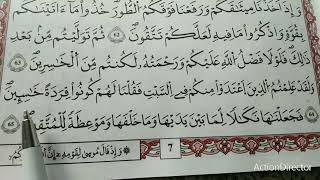 وَإِذْ أَخَذْنَا مِيثَٰقَكُمْ وَرَفَعْنَا فَوْقَكُمُ الطُّورَ خُذُوا مَا ءَاتَيْنَٰكُم
بِقُوَّةٍ وَاذْكُرُوا مَا فِيهِ لَعَلَّكُمْ تَتَّقُونَ ثُمَّ تَوَلَّيْتُم مِّنۢ بَعْدِ
ذَٰلِكَ فَلَوْلَا فَضْلُ اللَّهِ عَلَيْكُمْ وَرَحْمَتُهُ لَكُنتُم مِّنَ الْخَٰسِرِينَ
وَلَقَدْ عَلِمْتُمُ الَّذِينَ اعْتَدَوْا مِنكُمْ فِي السَّبْتِ فَقُلْنَا لَهُمْ كُونُوا قِرَدَةً خَٰسِـِٔينَ
فَجَعَلْنَٰهَا نَكَٰلًا لِّمَا بَيْنَ يَدَيْهَا وَمَا خَلْفَهَا وَمَوْعِظَةً لِّلْمُتَّقِينَ
7
وَإِذْ قَالَ مُوسَىٰ لِقَوْمِهِ إِنَّ اللَّهَ
ActionDirector